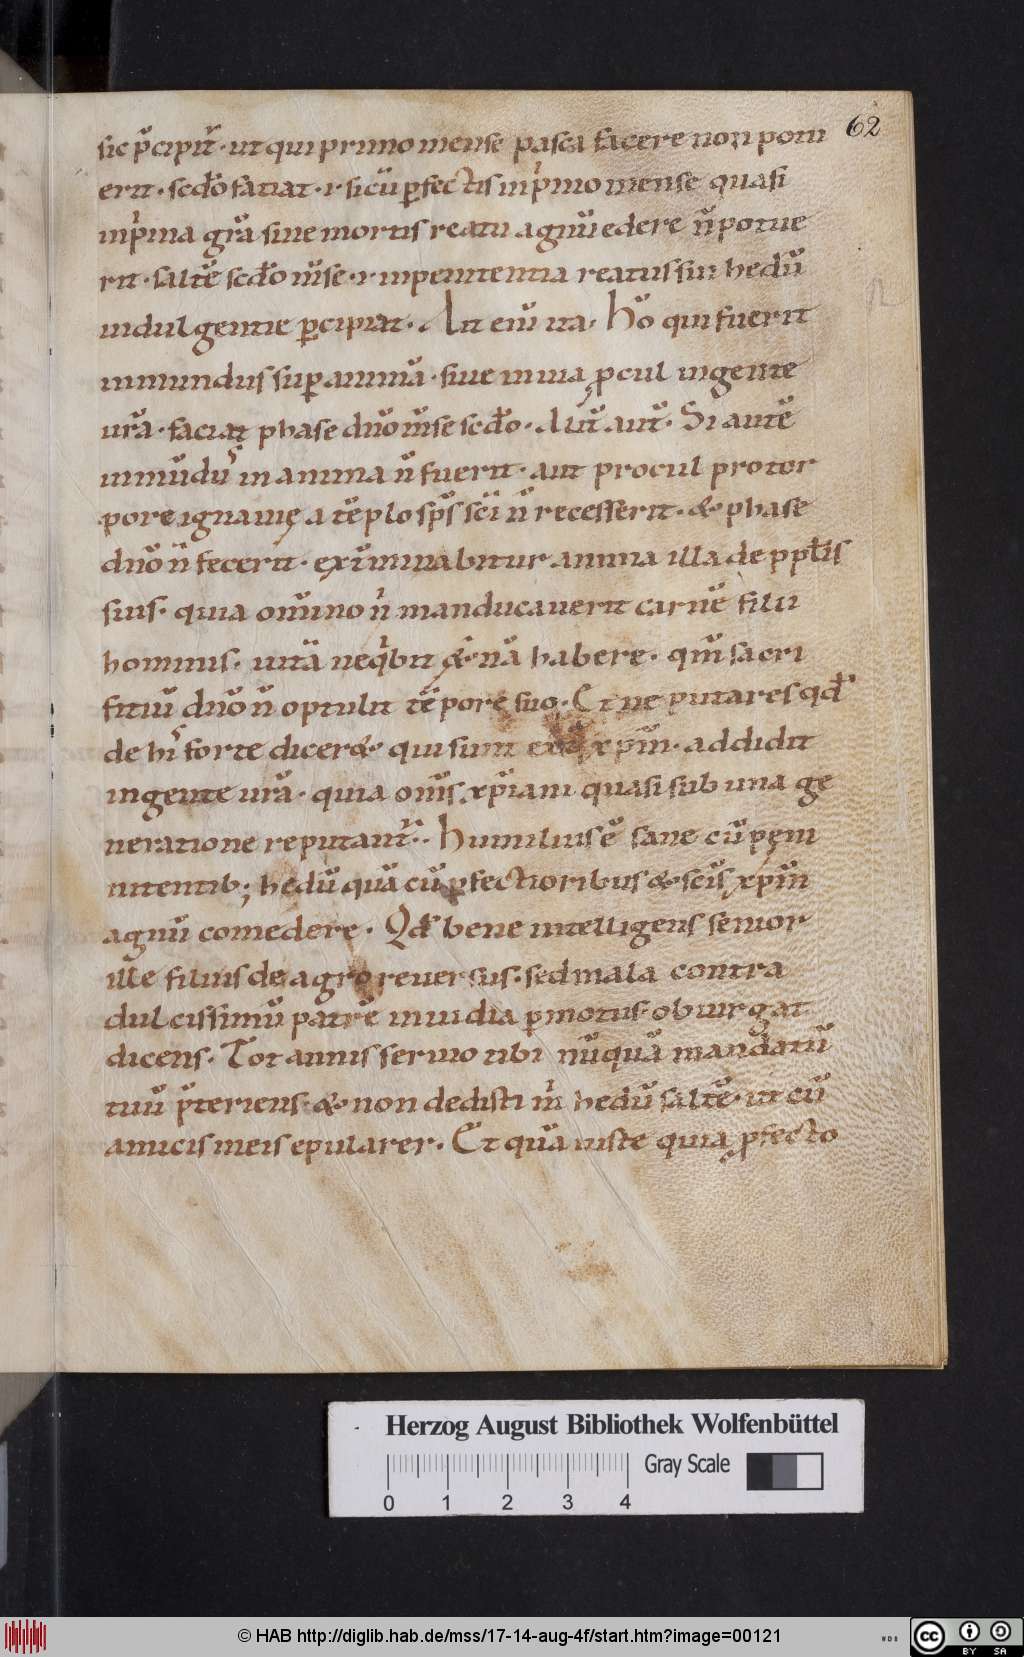 62
sic p̄cipit̄· ut qui primo mense pasca facere non potu
erit· scd̄o faciat· i· si cū ꝑfectis inpͥmo mense quasi
inpͥma gr̄a siue mortis reatu agnū edere n̄ potue
rit· saltē scd̄o m̄se· i· inpenitentia reatus sui hedū
indulgentie ꝑcipiat· Ait enī ita· Hō qui fuerit
inmundus suꝑ animā· siue in uia ꝓcul ingente
ur̄a· faciat phase dn̄o m̄se scd̄o· Aliт̄ aut̄· Si autē
inmūdus in anima n̄ fuerit· aut procul pro tor
pore ignauię a tēplo sp̄s sc̄i n̄ recesserit· & phase
dn̄o n̄ fecerit· exīminabitur anima illa de ppl̄is
suis· quia om̄ino n̄ manducauerit carnē filii
hominis· uitā neqͥbit &ͥnā habere· qm̄ sacri
fitiū dn̄o n̄ optulit tēpore suo· Et ne putares qd̄
de hiͥs forte dicer& qui sunt extͣ xp̄m· addidit
ingente ur̄a· quia om̄s xp̄iani quasi sub una ge
neratione reputant̄· Humilius ē sane cū pęni
nitentib; hedū quā cū ꝑfectioribus & sc̄is xp̄m
agnū comedere· Qd̄ bene intelligens senior
ille filius de agro reuersus· sed mala contra
dulcissimū patrē inuidia ꝑmotus obiurgat
dicens· Tot annis seruio tibi nūquā mandatū
tuū p̄teriens· & non dedisti mͥ hedū saltē· ut cū
amicis meis epularer· Et quā iuste quia ꝓfecto
Herzog August Bibliothek Wolfenbüttel
Gray Scale
0 1 2 3 4
© HAB http://diglib.hab.de/mss/17-14-aug-4f/start.htm?image=00121
WDB
cc BY SA